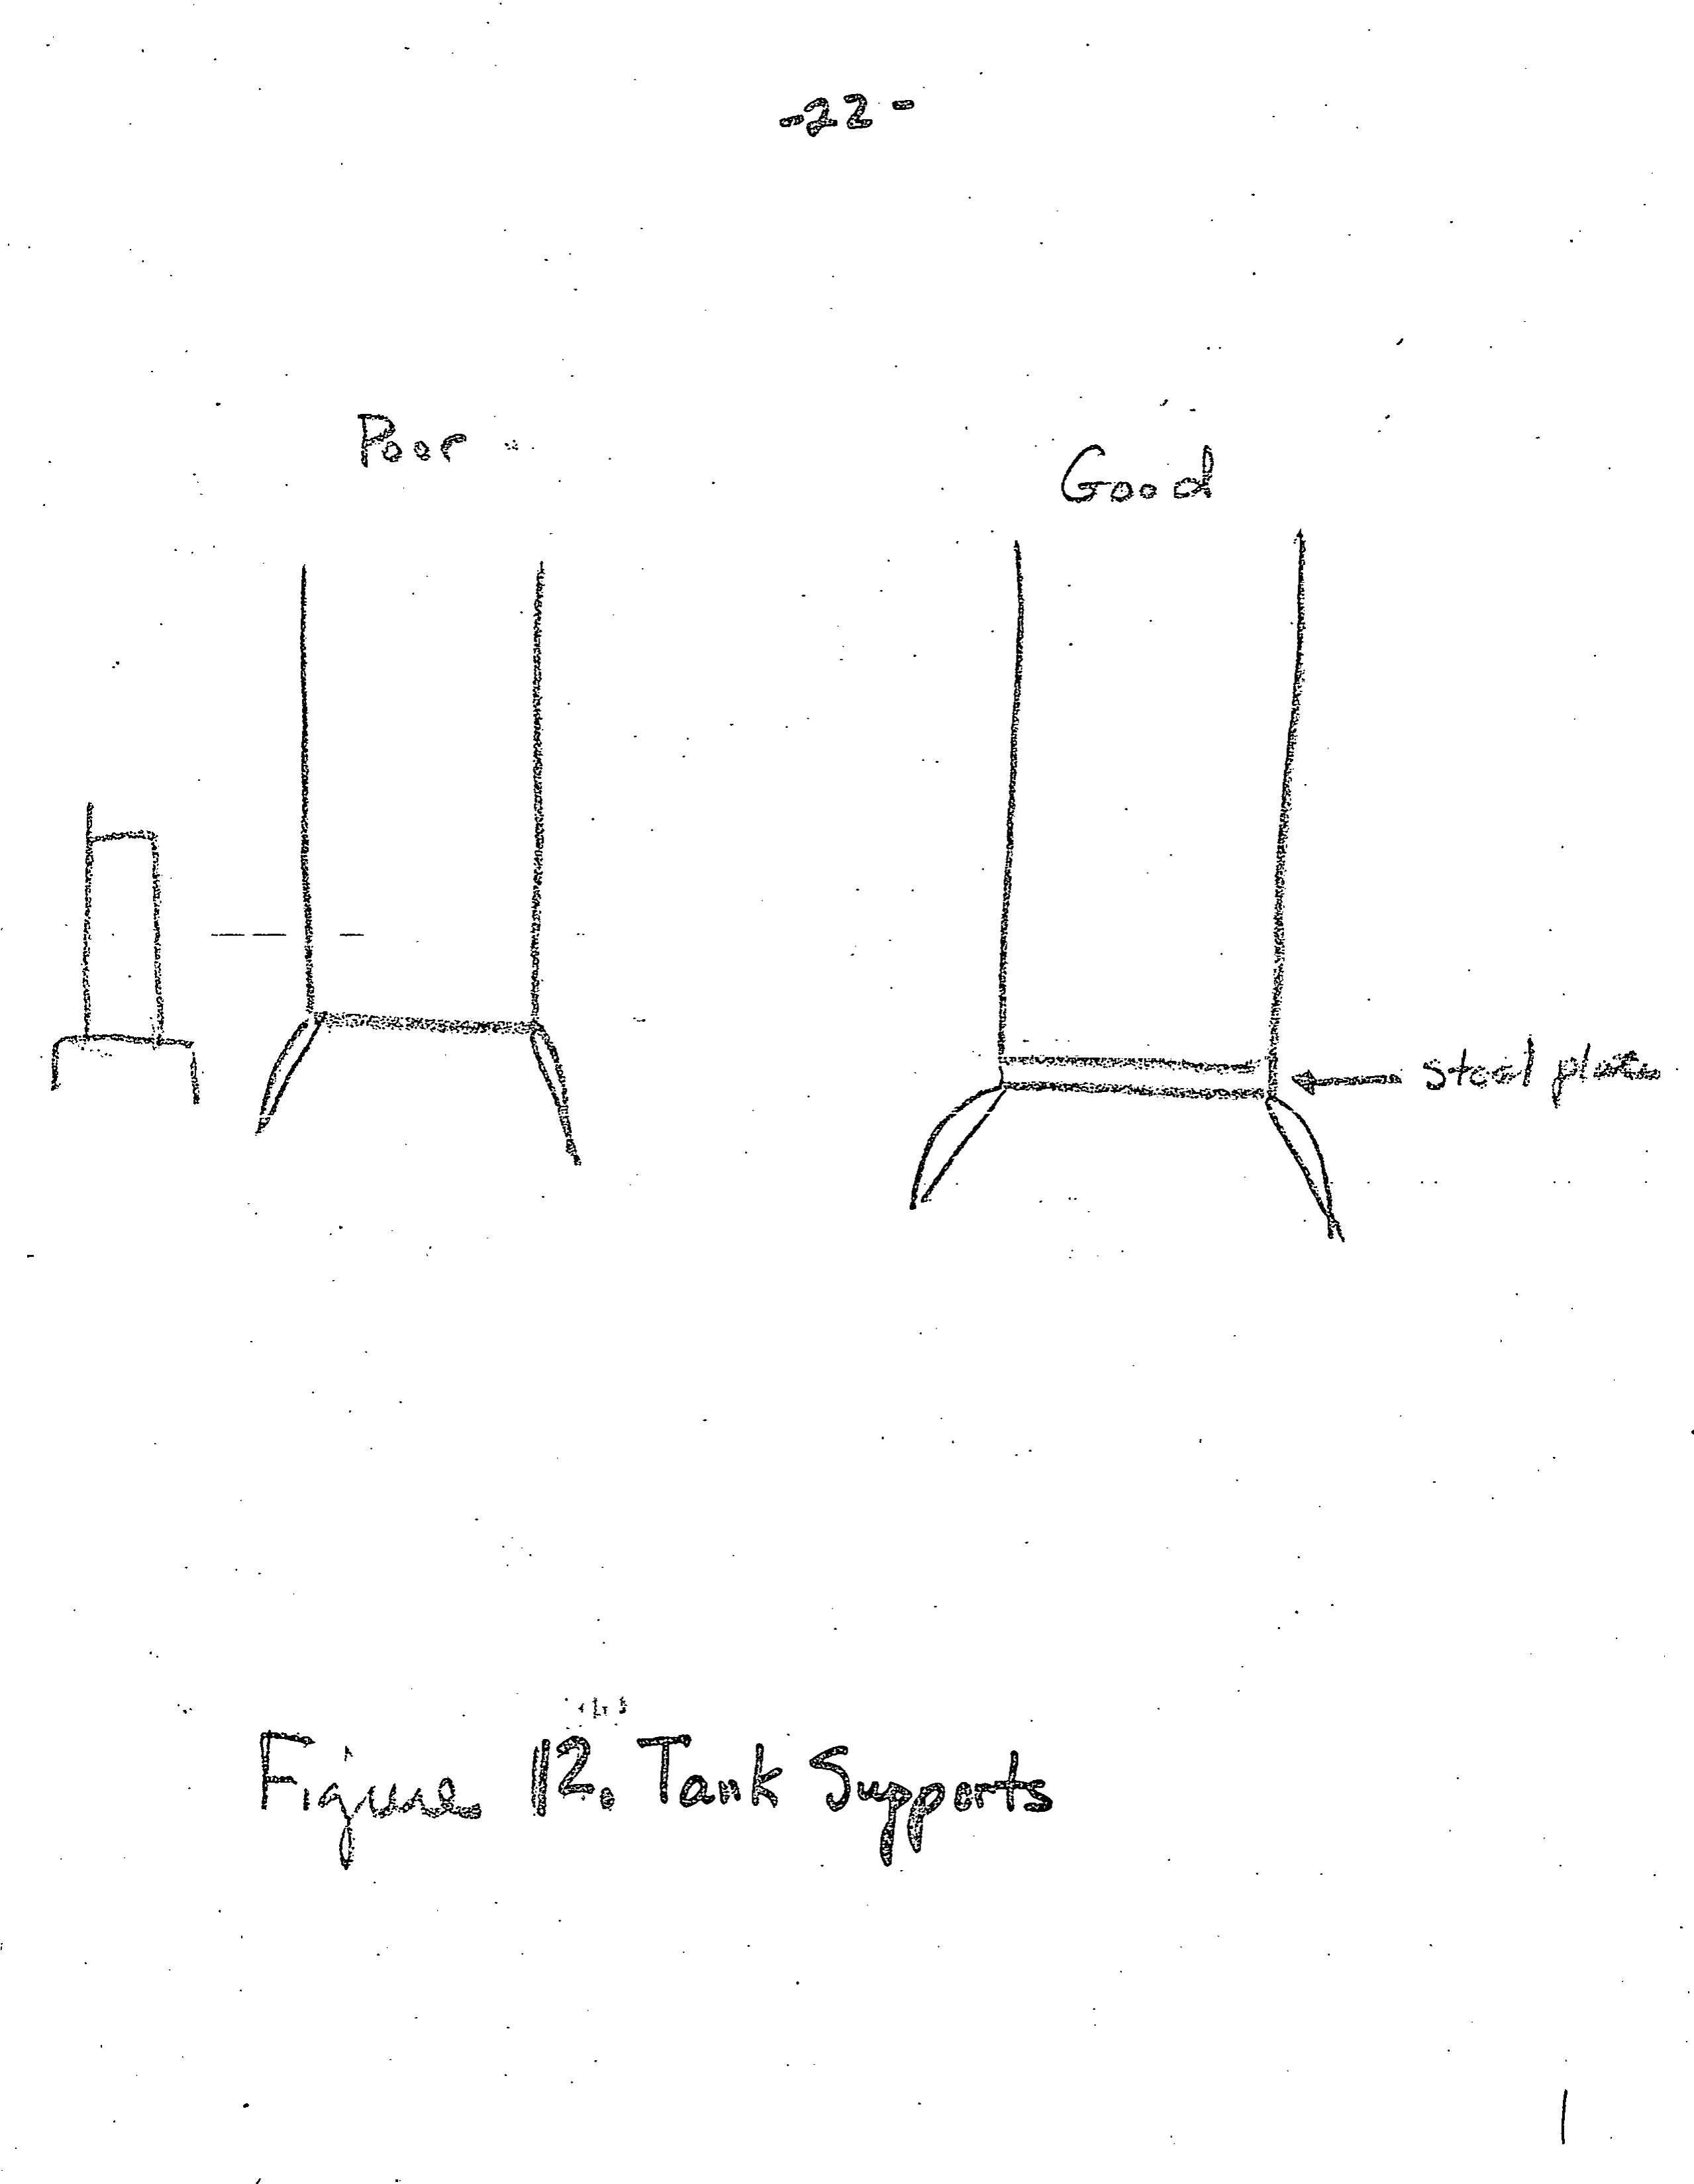 -22-
Poor
Good
steel plate
Figure 12. Tank Supports